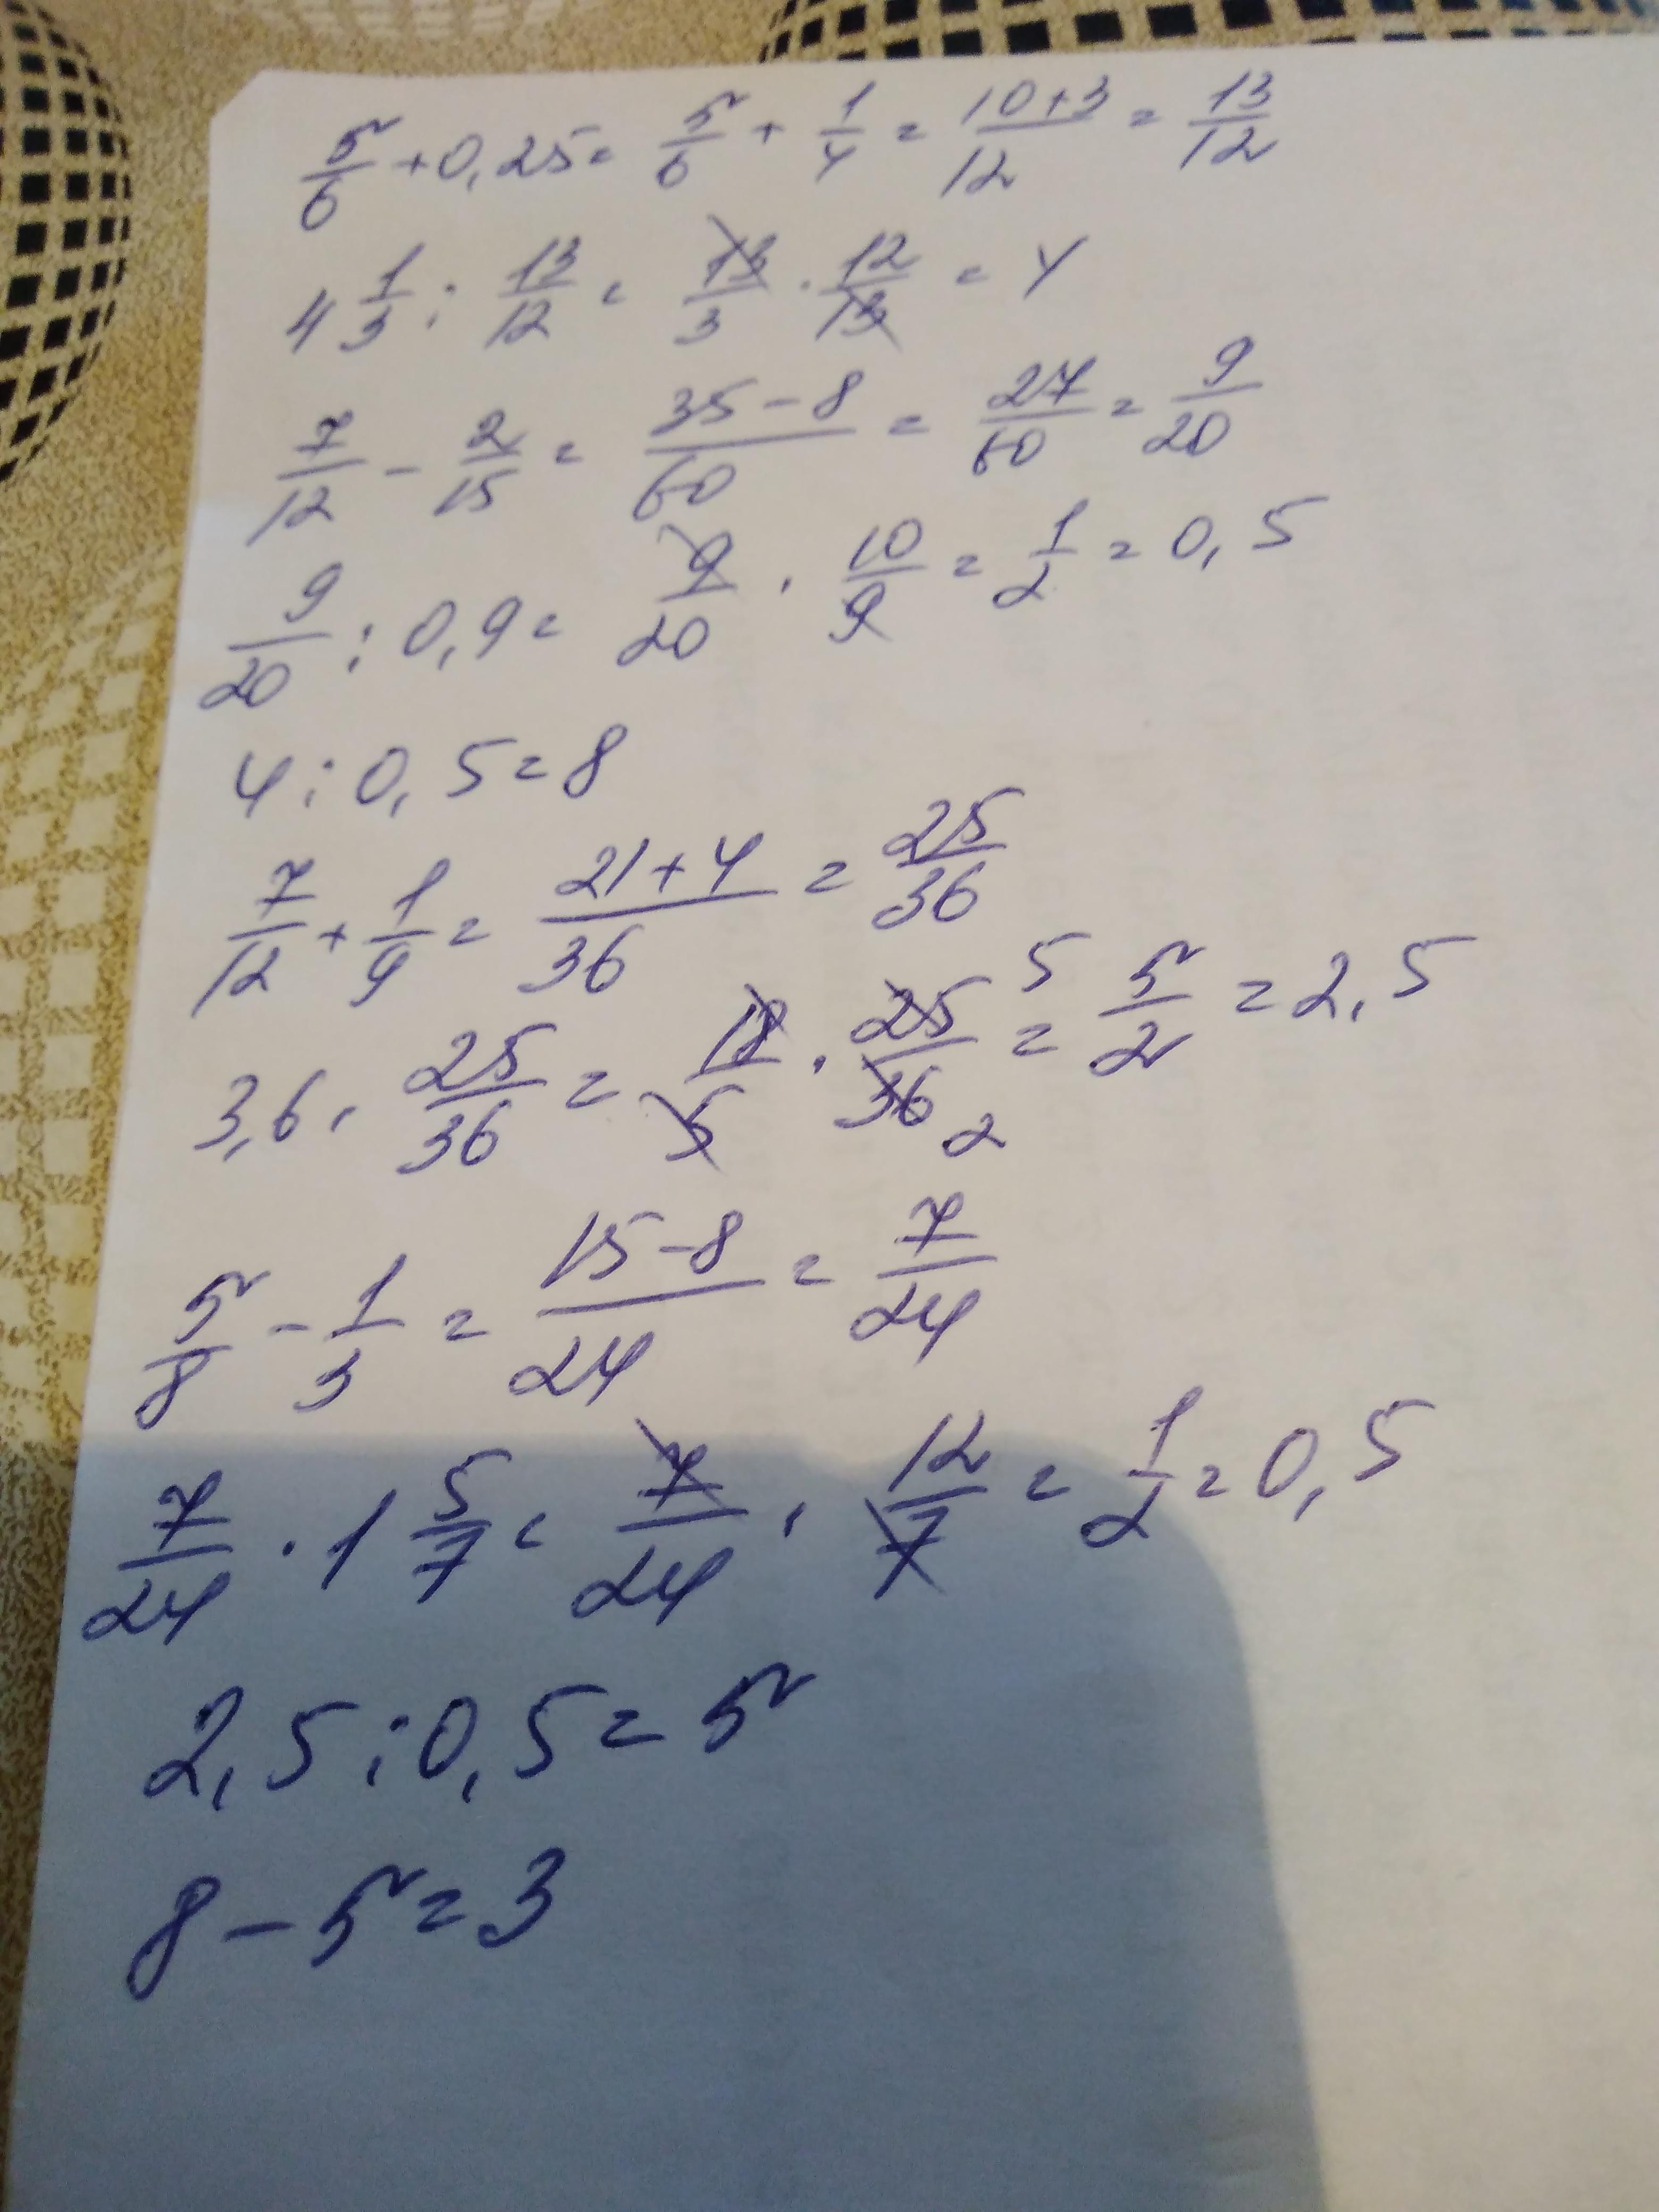 5/6 + 0,25 = 5/6 + 1/4 = (10+3)/12 = 13/12
4 1/3 : 13/12 = 13/3 · 12/13 = 4
7/12 - 2/15 = (35-8)/60 = 27/60 = 9/20
9/20 : 0,9 = 9/20 · 10/9 = 1/2 = 0,5
4 : 0,5 = 8
7/12 + 1/9 = (21+4)/36 = 25/36
3,6 · 25/36 = 18/5 · 25/36 5 2 = 5/2 = 2,5
5/8 - 1/3 = (15-8)/24 = 7/24
7/24 · 1 5/7 = 7/24 · 12/7 = 1/2 = 0,5
2,5 : 0,5 = 5
8 - 5 = 3